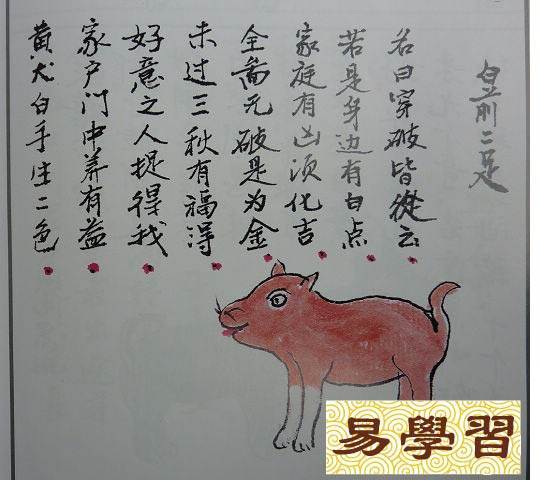 白前二足
黄犬白手生二色
家户门中养有益
好意之人捉得我
未过三秋有福得
全无破是为金
家庭有凶须化吉
若是身边有白点
名曰穿破皆從云
易學習